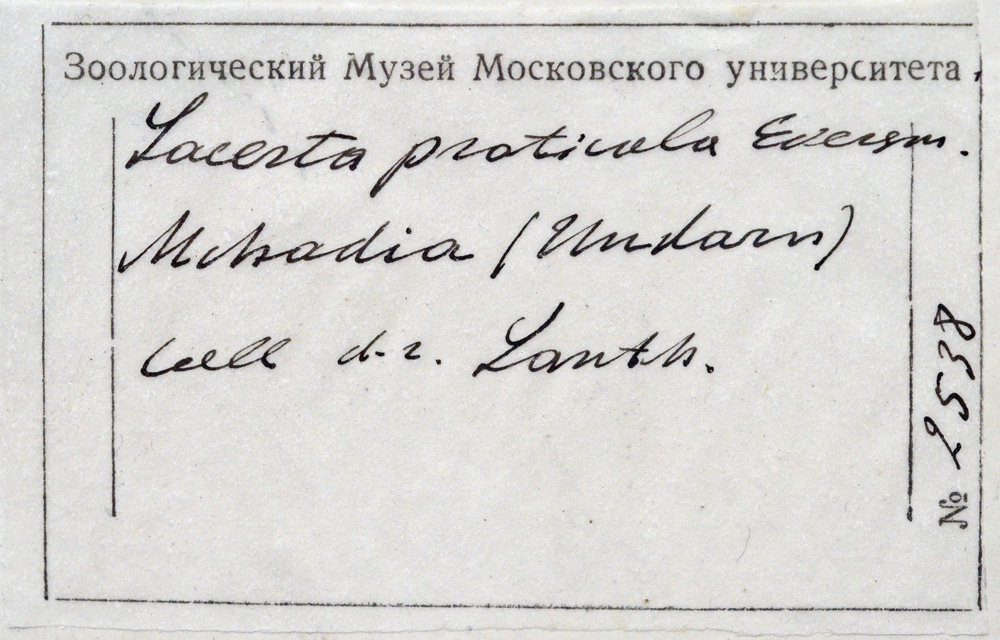 Зоологический Музей Московского университета
Lacerta praticola Eversm.
Mehadia (Ungarn)
Coll d-r. Lantz.
№ 2538